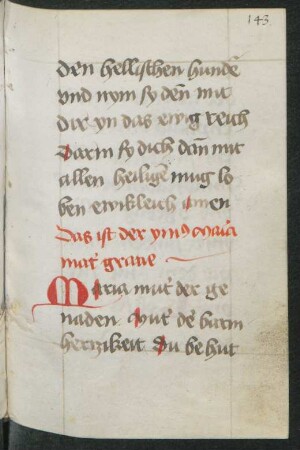 143
den hellischen hunde
vnd nym sy den mit
dir yn das ewig reich
Darin sy dich dan mit
allen heilige mug lo
ben ewikleich amen
Das ist der ymꝰ maria
mat grate
Maria mut der ge
naden mut de barm
herczikeit du be hut